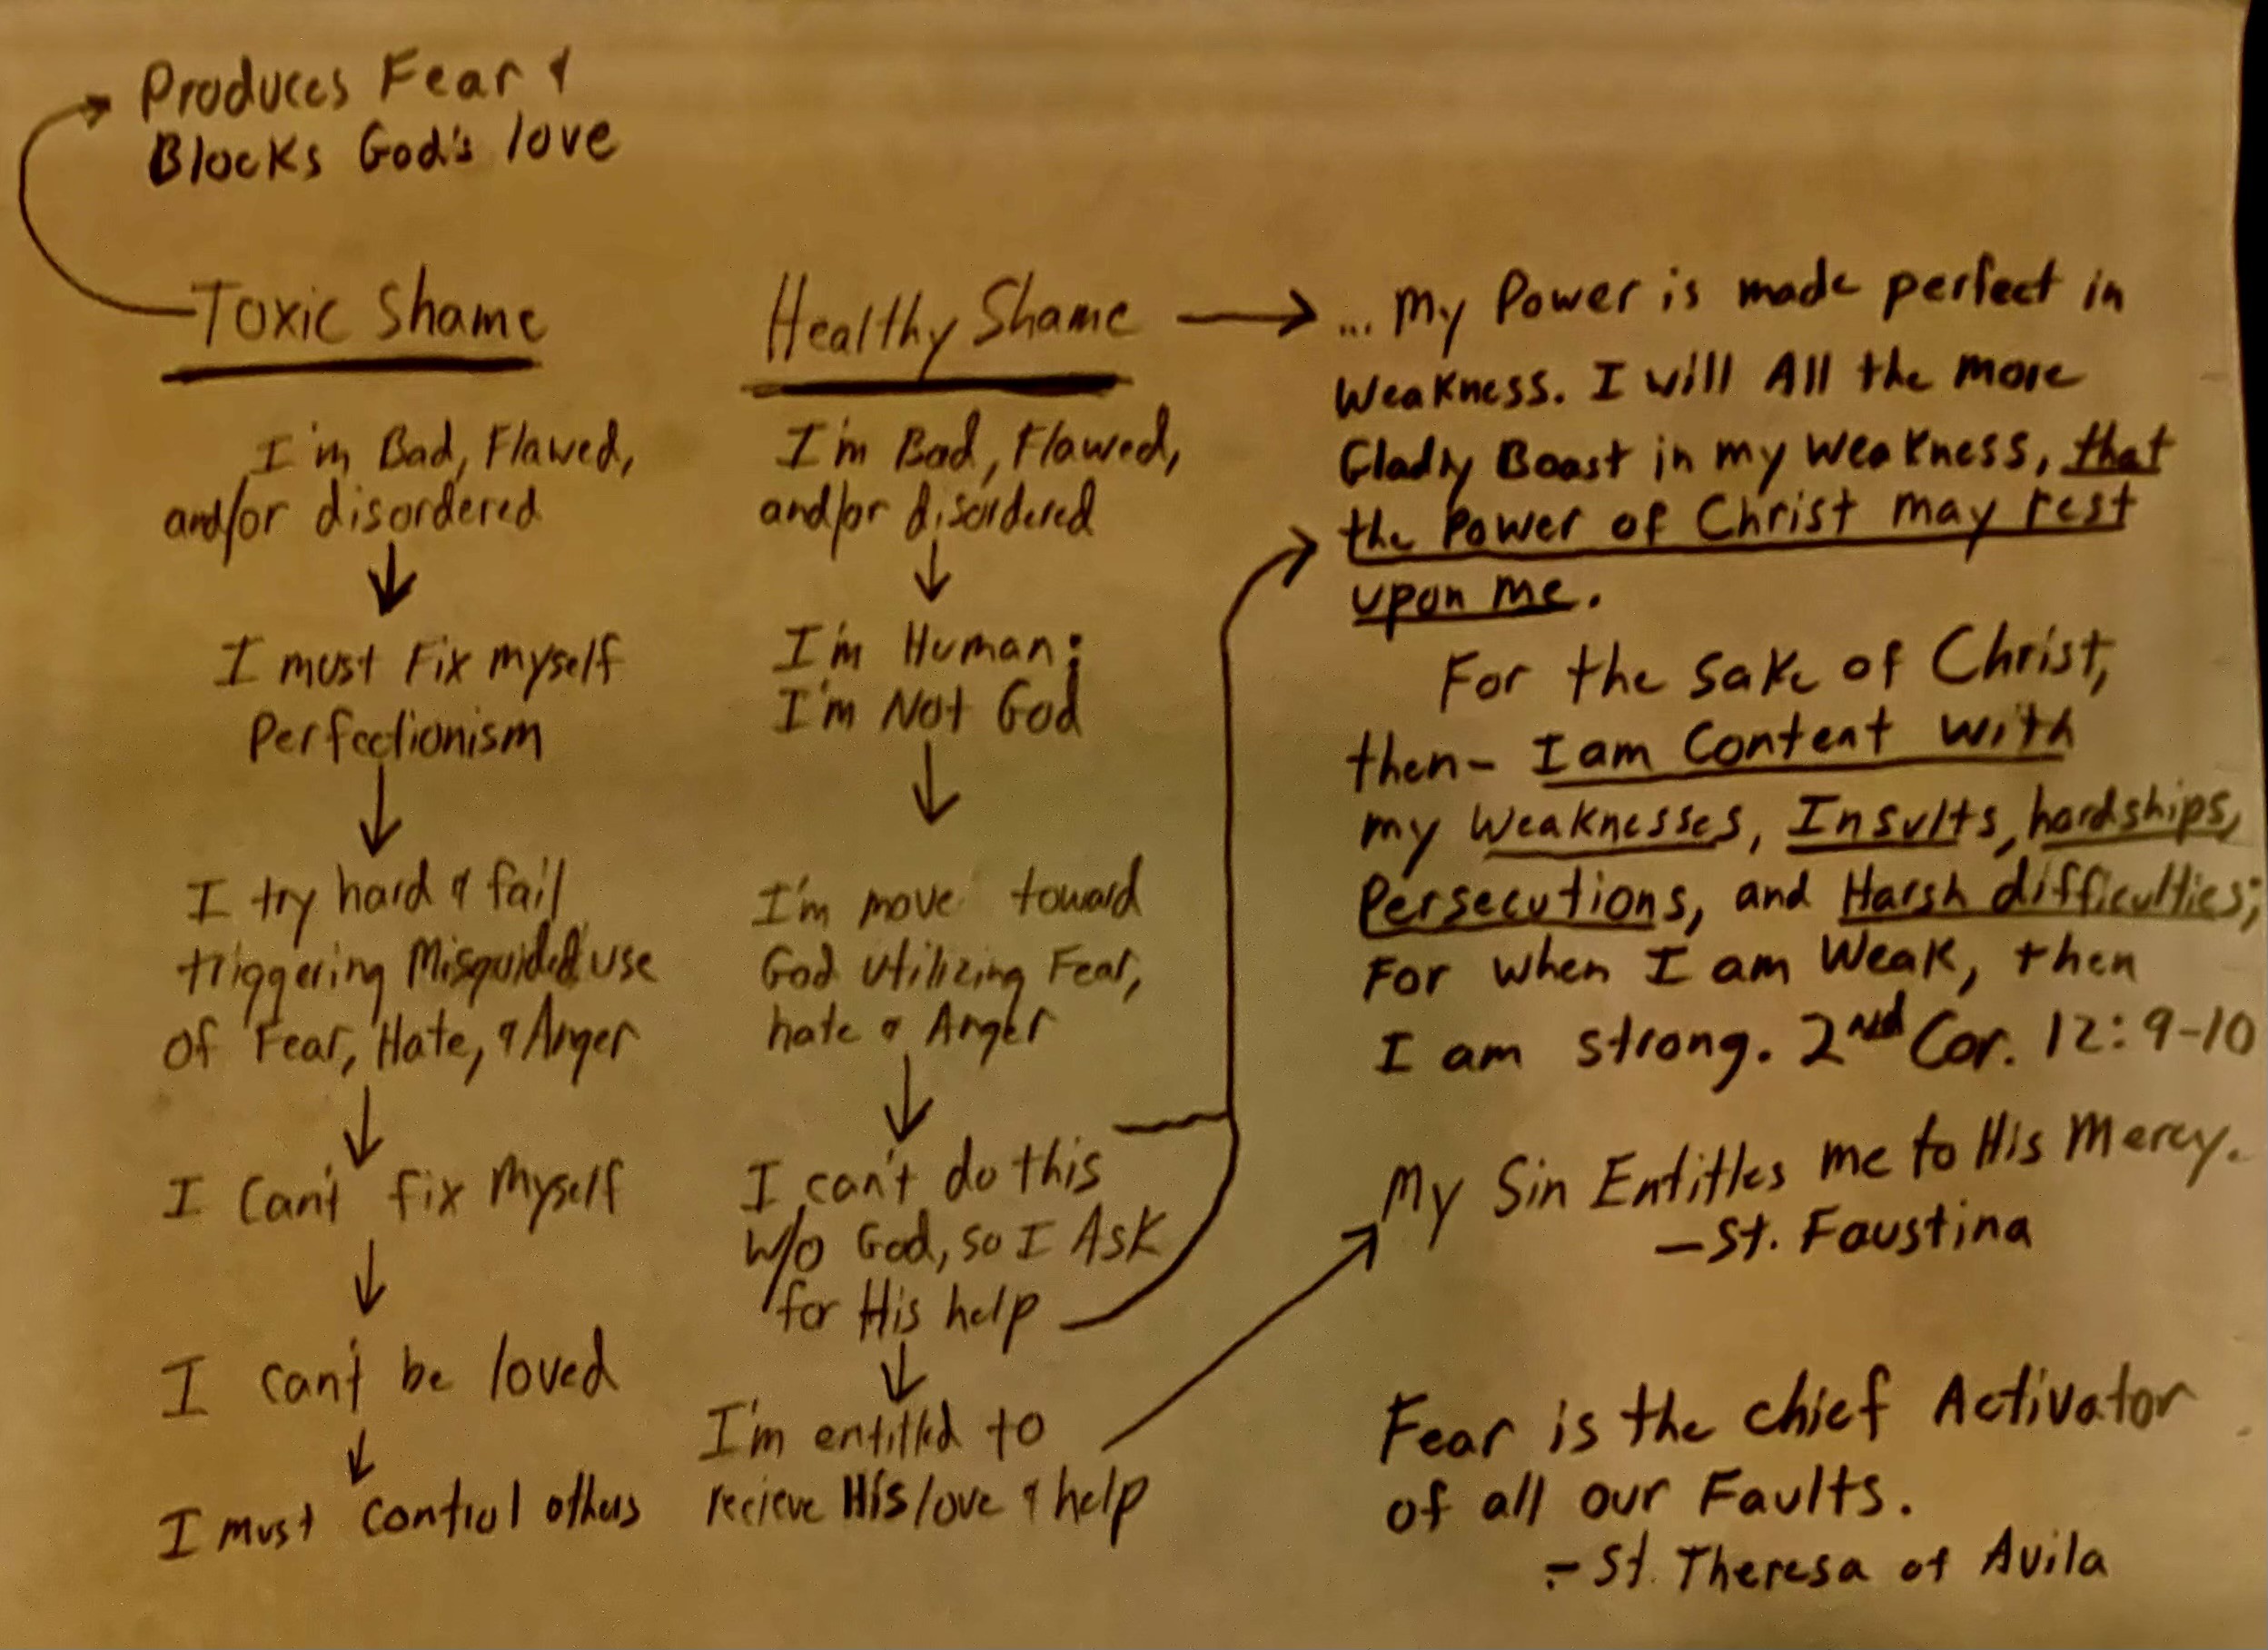 Produces Fear &
Blocks God's love
Toxic Shame
I'm Bad, Flawed,
and/or disordered
I must Fix myself
Perfectionism
I try hard & fail
triggering Misguided use
of Fear, Hate, & Anger
I Can't fix Myself
I can't be loved
I must control others
Healthy Shame
I'm Bad, Flawed,
and/or disordered
I'm Human;
I'm Not God
I'm move toward
God utilizing Fear,
hate & Anger
I can't do this
w/o God, so I Ask
for His help
I'm entitled to
recieve His love & help
... My Power is made perfect in
Weakness. I will All the more
Gladly Boast in my Weakness, that
the Power of Christ may rest
upon me.
For the sake of Christ,
then- I am Content with
my Weaknesses, Insults, hardships,
Persecutions, and Harsh difficulties;
For when I am Weak, then
I am strong. 2nd Cor. 12:9-10
My Sin Entitles me to His Mercy.
-St. Faustina
Fear is the chief Activator
of all our Faults.
- St. Theresa of Avila